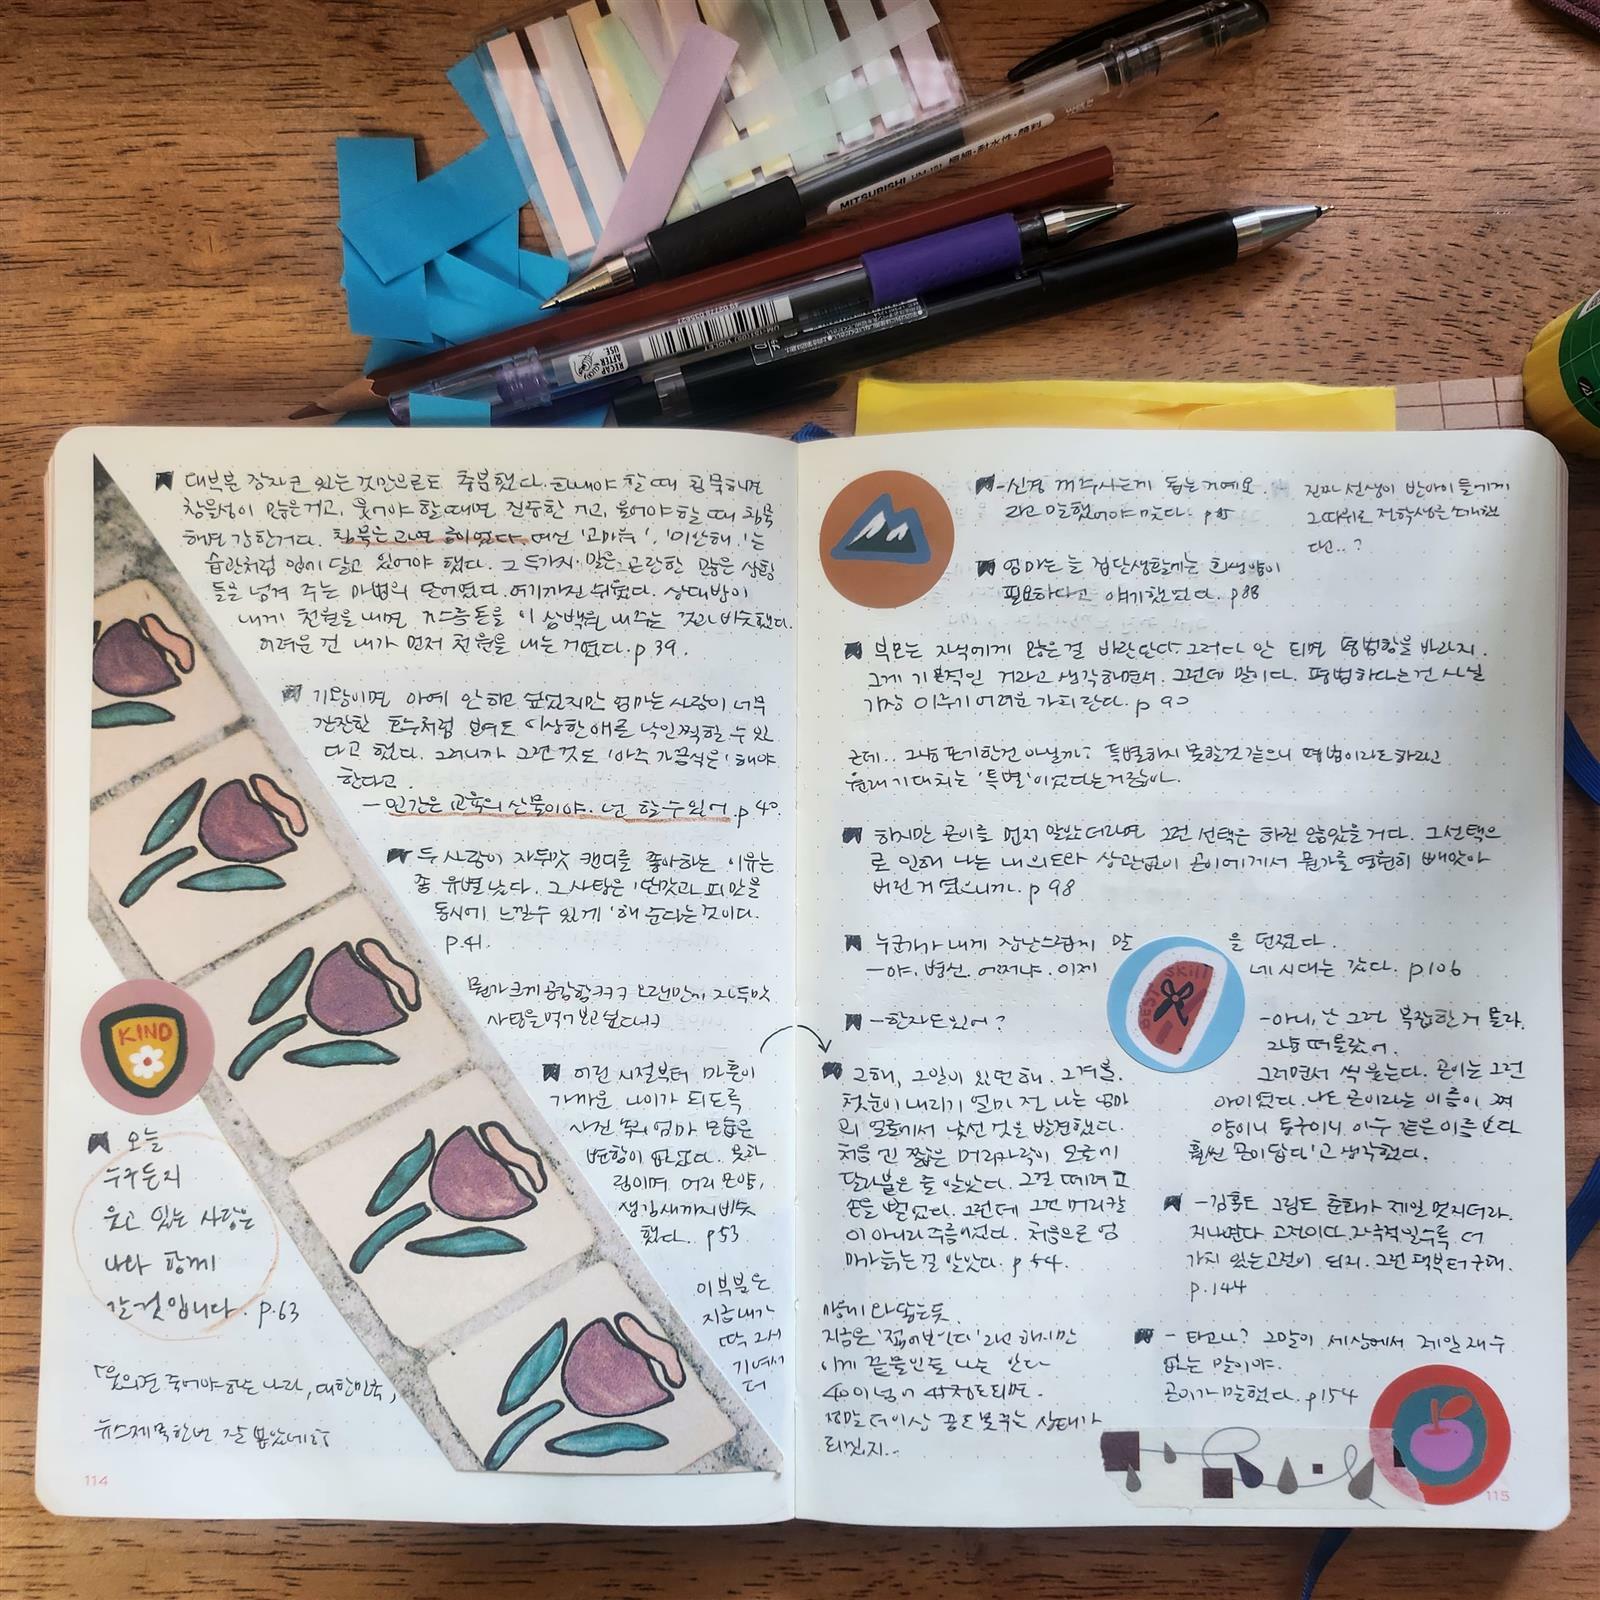 MITSUBISHI UM-151 極細・耐水性・顔料
UM-151(05) VIOLET
RECAP AFTER USE
대부분 잠자코 있는 것만으로도 충분했다. 화내야 할 때 침묵하면
참을성이 많은거고, 웃어야 할 때면 진중한 거고, 울어야 할 때 침묵
하면 강한거다. 침묵은 과연 금이었다. 대신 '고마워', '미안해'는
습관처럼 입에 달고 있어야 했다. 그 두가지 말은 곤란한 많은 상황
들을 넘겨 주는 마법의 단어였다. 여기까진 쉬웠다. 상대방이
내게 천원을 내면 거스름돈을 이삼백원 내주는 것과 비슷했다.
어려운 건 내가 먼저 천원을 내는 거였다. p 39.
기왕이면 아예 안 하고 싶었지만 엄마는 사람이 너무
잔잔한 호수처럼 보여도 이상한 애로 낙인찍힐 수 있
다고 했다. 그러니까 그런 것도 '아주 가끔씩은' 해야
한다고
- 인간은 교육의 산물이야. 넌 할 수 있어. p 40
두 사람이 자두맛 캔디를 좋아하는 이유는
좀 유별났다. 그 사탕은 '단맛과 피맛을
동시에 느낄 수 있게' 해 준다는 것이다.
p.41.
뭔가 크게 공감함ㅋㅋㅋ 오랜만에 자두맛
사탕을 먹고 싶다
KIND
어린 시절부터 마흔이
가까운 나이가 되도록
사진 속의 엄마 모습은
변함이 없었다. 옷차
림이며 머리 모양,
생김새까지 비슷
했다. p53
이부분은
지금 내가
딱 그 시
기여서
더
오늘
누구든지
웃고 있는 사람은
나와 함께
갈 것입니다. p.63
「웃으면 죽어야하는 나라, 대한민국」
뉴스제목 한번 잘 뽑았네
114
-신경 꺼주시는게 돕는거예요.
라고 말했어야 맞다. p 85
진짜 선생이 반아이들에게
그따위로 전학생을 소개했
다고..?
엄마는 늘 집단생활에는 희생양이
필요하다고 얘기했었다. p88
부모는 자식에게 많은 걸 바란단다. 그러다 안 되면 평범함을 바라지.
그게 기본적인 거라고 생각하면서. 그런데 말이다. 평범하다는 건 사실
가장 이루기 어려운 가치란다. p 90
근데.. 그냥 포기한건 아닐까? 특별하지 못할것 같으니 평범이라도 하라고
원래 기대치는 '특별'이었다는거잖아.
하지만 곤이를 먼저 알았더라면 그런 선택은 하진 않았을 거다. 그 선택으
로 인해 나는 내 의도와 상관없이 곤이에게서 뭔가를 영원히 빼앗아
버린 거였으니까. p 98
누군가가 내게 장난스럽게 말 을 던졌다.
-야. 병신. 어쩌냐. 이제 네 시대는 갔다. p.106
BEST SKILL
-한자도 있어?
-아니, 난 그런 복잡한 거 몰라.
그냥 떠올랐어.
그러면서 씩 웃는다. 곤이는 그런
아이였다. 나도 곤이라는 이름이 쩌
양이니 동구이니 아무 같은 이름보다
훨씬 곤이답다'고 생각했다.
그해, 그 일이 있던 해. 그 겨울.
첫눈이 내리기 얼마 전 나는 엄마
의 얼굴에서 낯선 것을 발견했다.
처음엔 짧은 머리카락이 얼굴에
달라붙은 줄 알았다. 그걸 떼려고
손을 뻗었다. 그런데 그건 머리칼
이 아니라 주름이었다. 처음으로 엄
마가 늙는 걸 알았다. p 54.
마음에 와 닿는듯
지금은 '젊어보인다'라고 하지만
이게 끝물인줄 나는 안다
40이 넘어 45정도 되면.
정말 더이상 꿈도 못꾸는 상태가
되겠지..
-김홍도 그림도 춘화가 제일 멋지더라.
지나봐라 고전이다. 자극적일수록 더
가치 있는 고전이 되지. 그런 책부터 구해.
p.144
- 타고나? 그말이 세상에서 제일 재수
없는 말이야.
곤이가 말했다. p154
115